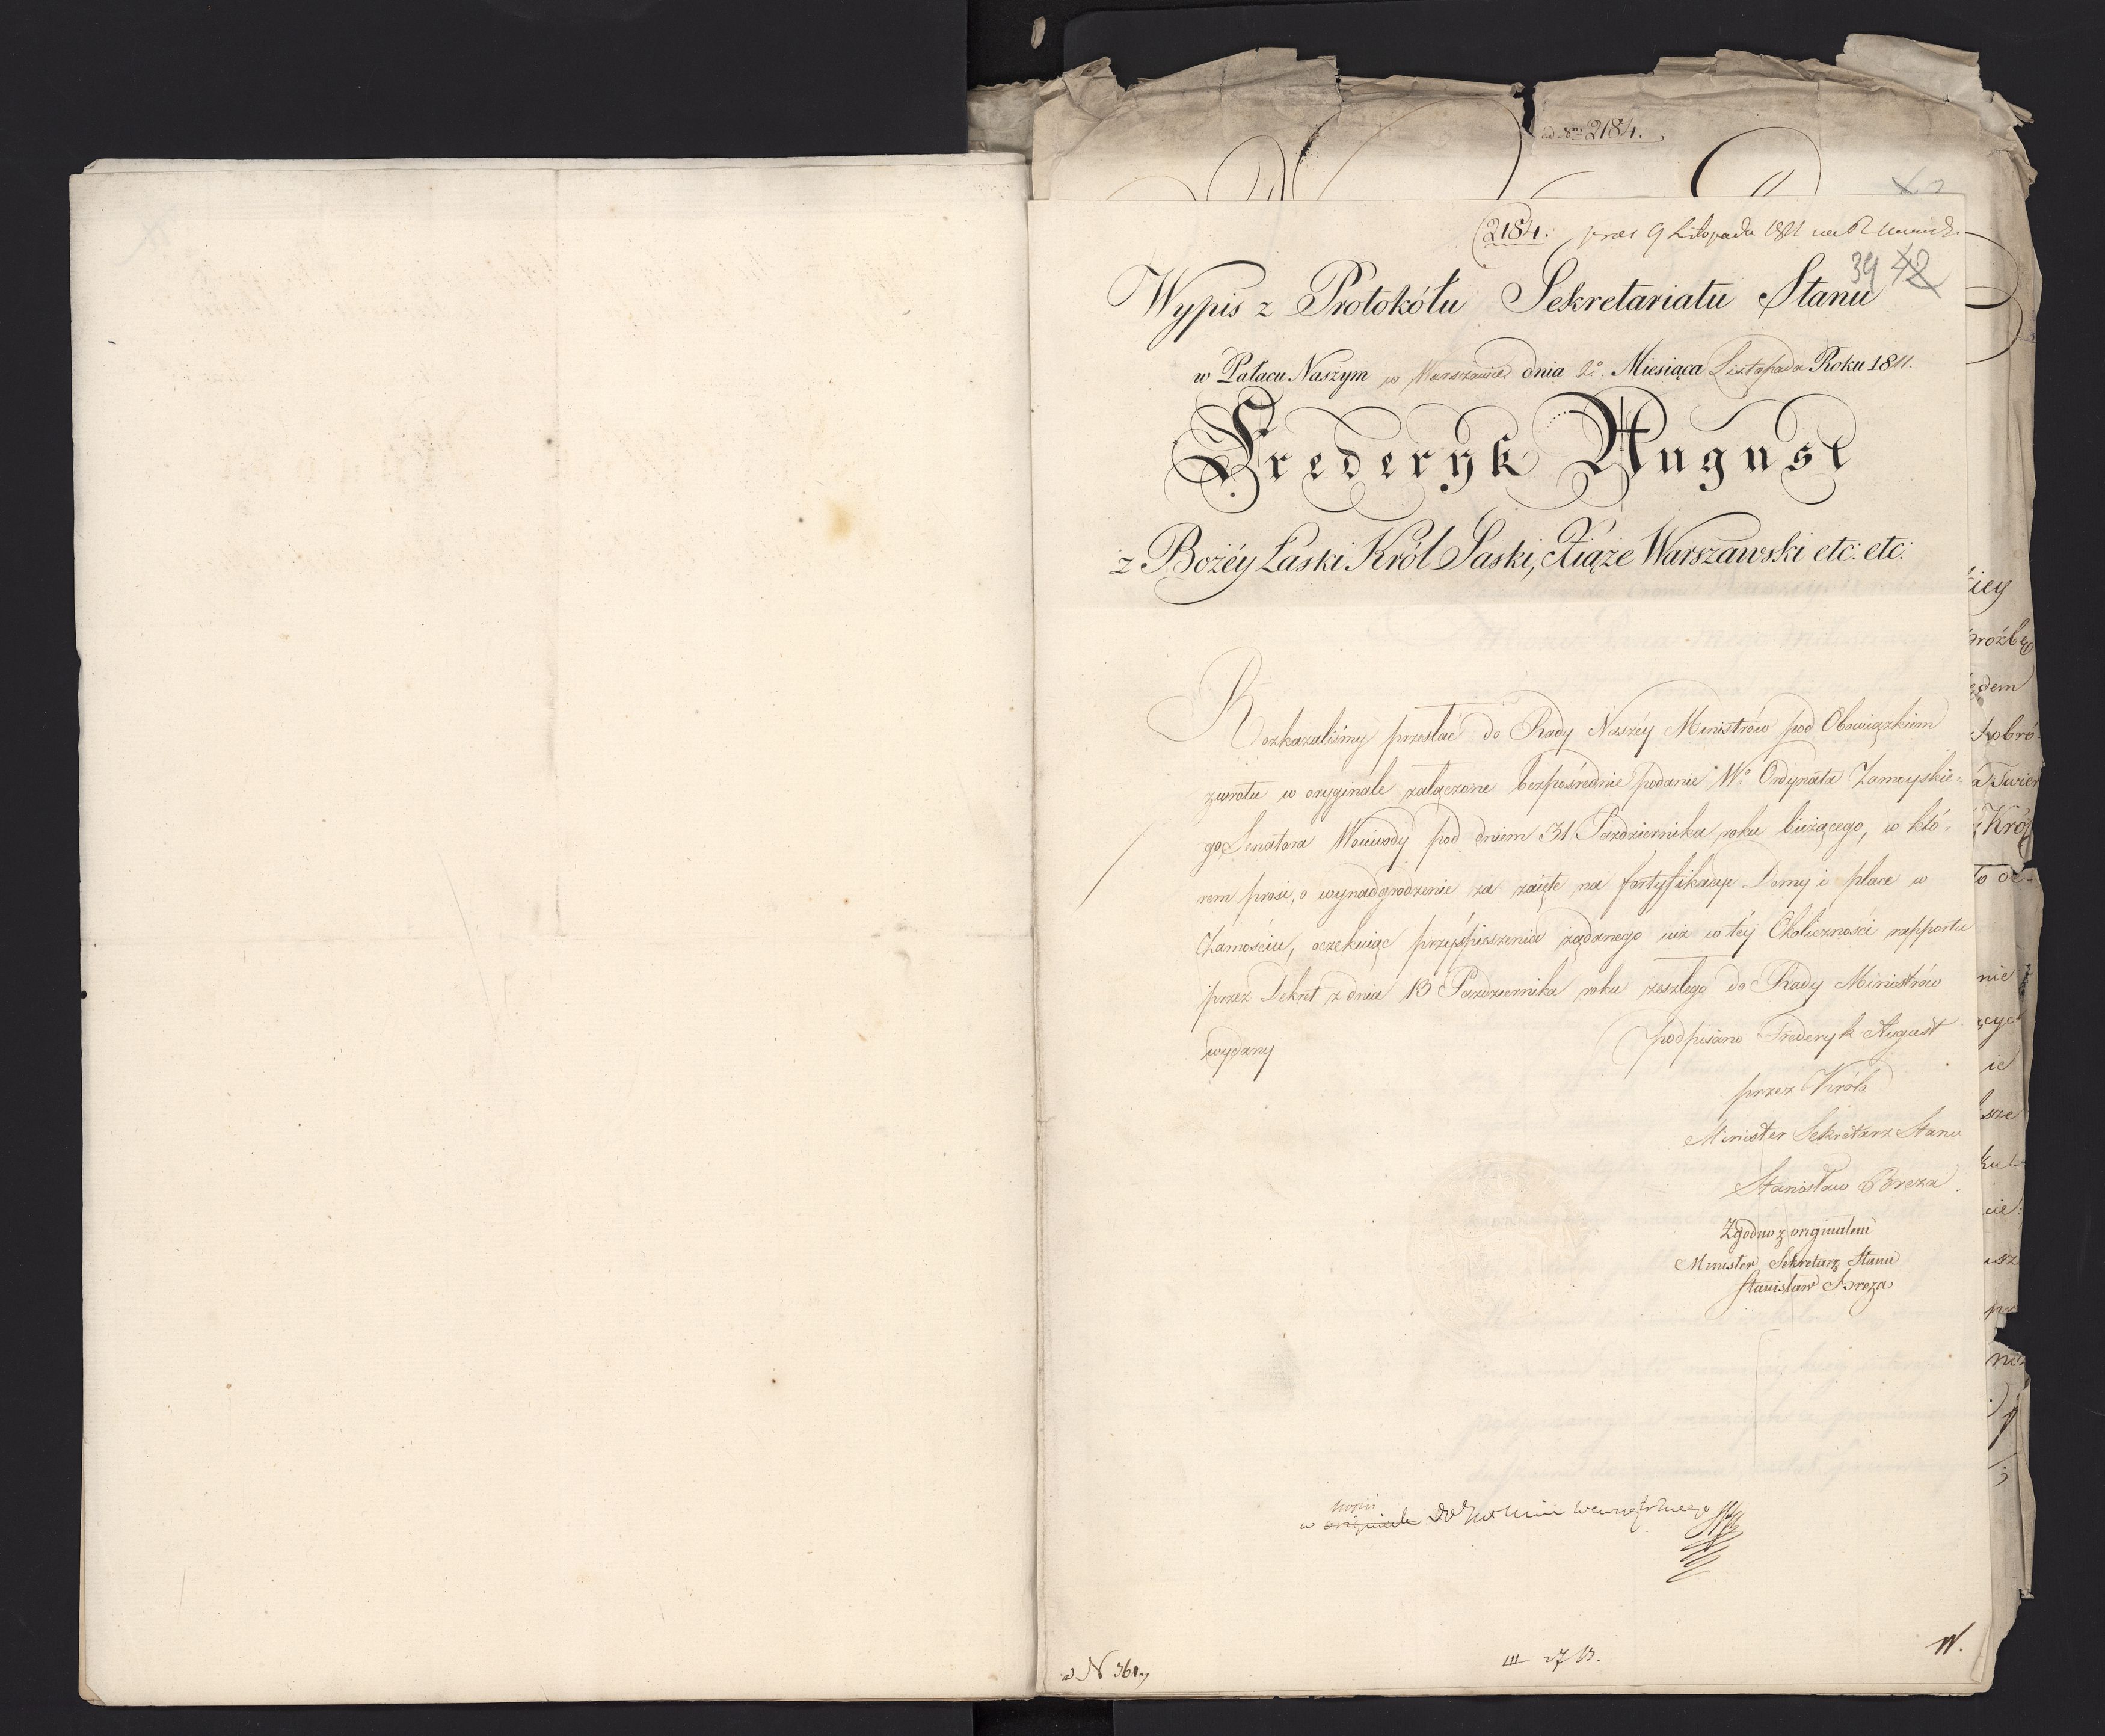 ad Nrm 2184.
2184. pres 9 Listopada 1811
39 42
Wypis z Protokółu Sekretariatu Stanu
w Pałacu Naszym w Warszawie dnia 2o. Miesiąca Listopada Roku 1811.
Frederyk August
z Bożéy Łaski Król Saski, Xiąże Warszawski etc: etc:
Rozkazaliśmy przesłać do Rady Naszéy Ministrów pod Obowiązkiem
zwrotu w oryginale załączone bezpośrednie podanie Wo Ordynata Zamoyskie=
go Senatora Woiewody pod dniem 31 Pazdziernika roku bieżącego, w któ-
rem prosi, o wynadgrodzenie za zaięte na fortyfikacye Domy i place w
Zamościu, oczekuiąc przyśpieszenia żądanego iuż w téy Okoliczności rapportu
przez Dekret z dnia 13 Pazdziernika roku zeszłego do Rady Ministrów
wydany
podpisano Frederyk August
przez Króla
Minister Sekretarz Stanu
Stanisław Breza
Zgodno z originałem
Minister Sekretarz Stanu
Stanisław Breza
kopii
w originale do Ministra Wewnętrznego
N 361
III 27 B.
W.
kiey
proźbę
ędem
dobró
a Twier
Kró
to od
nie
ący
ie
sze